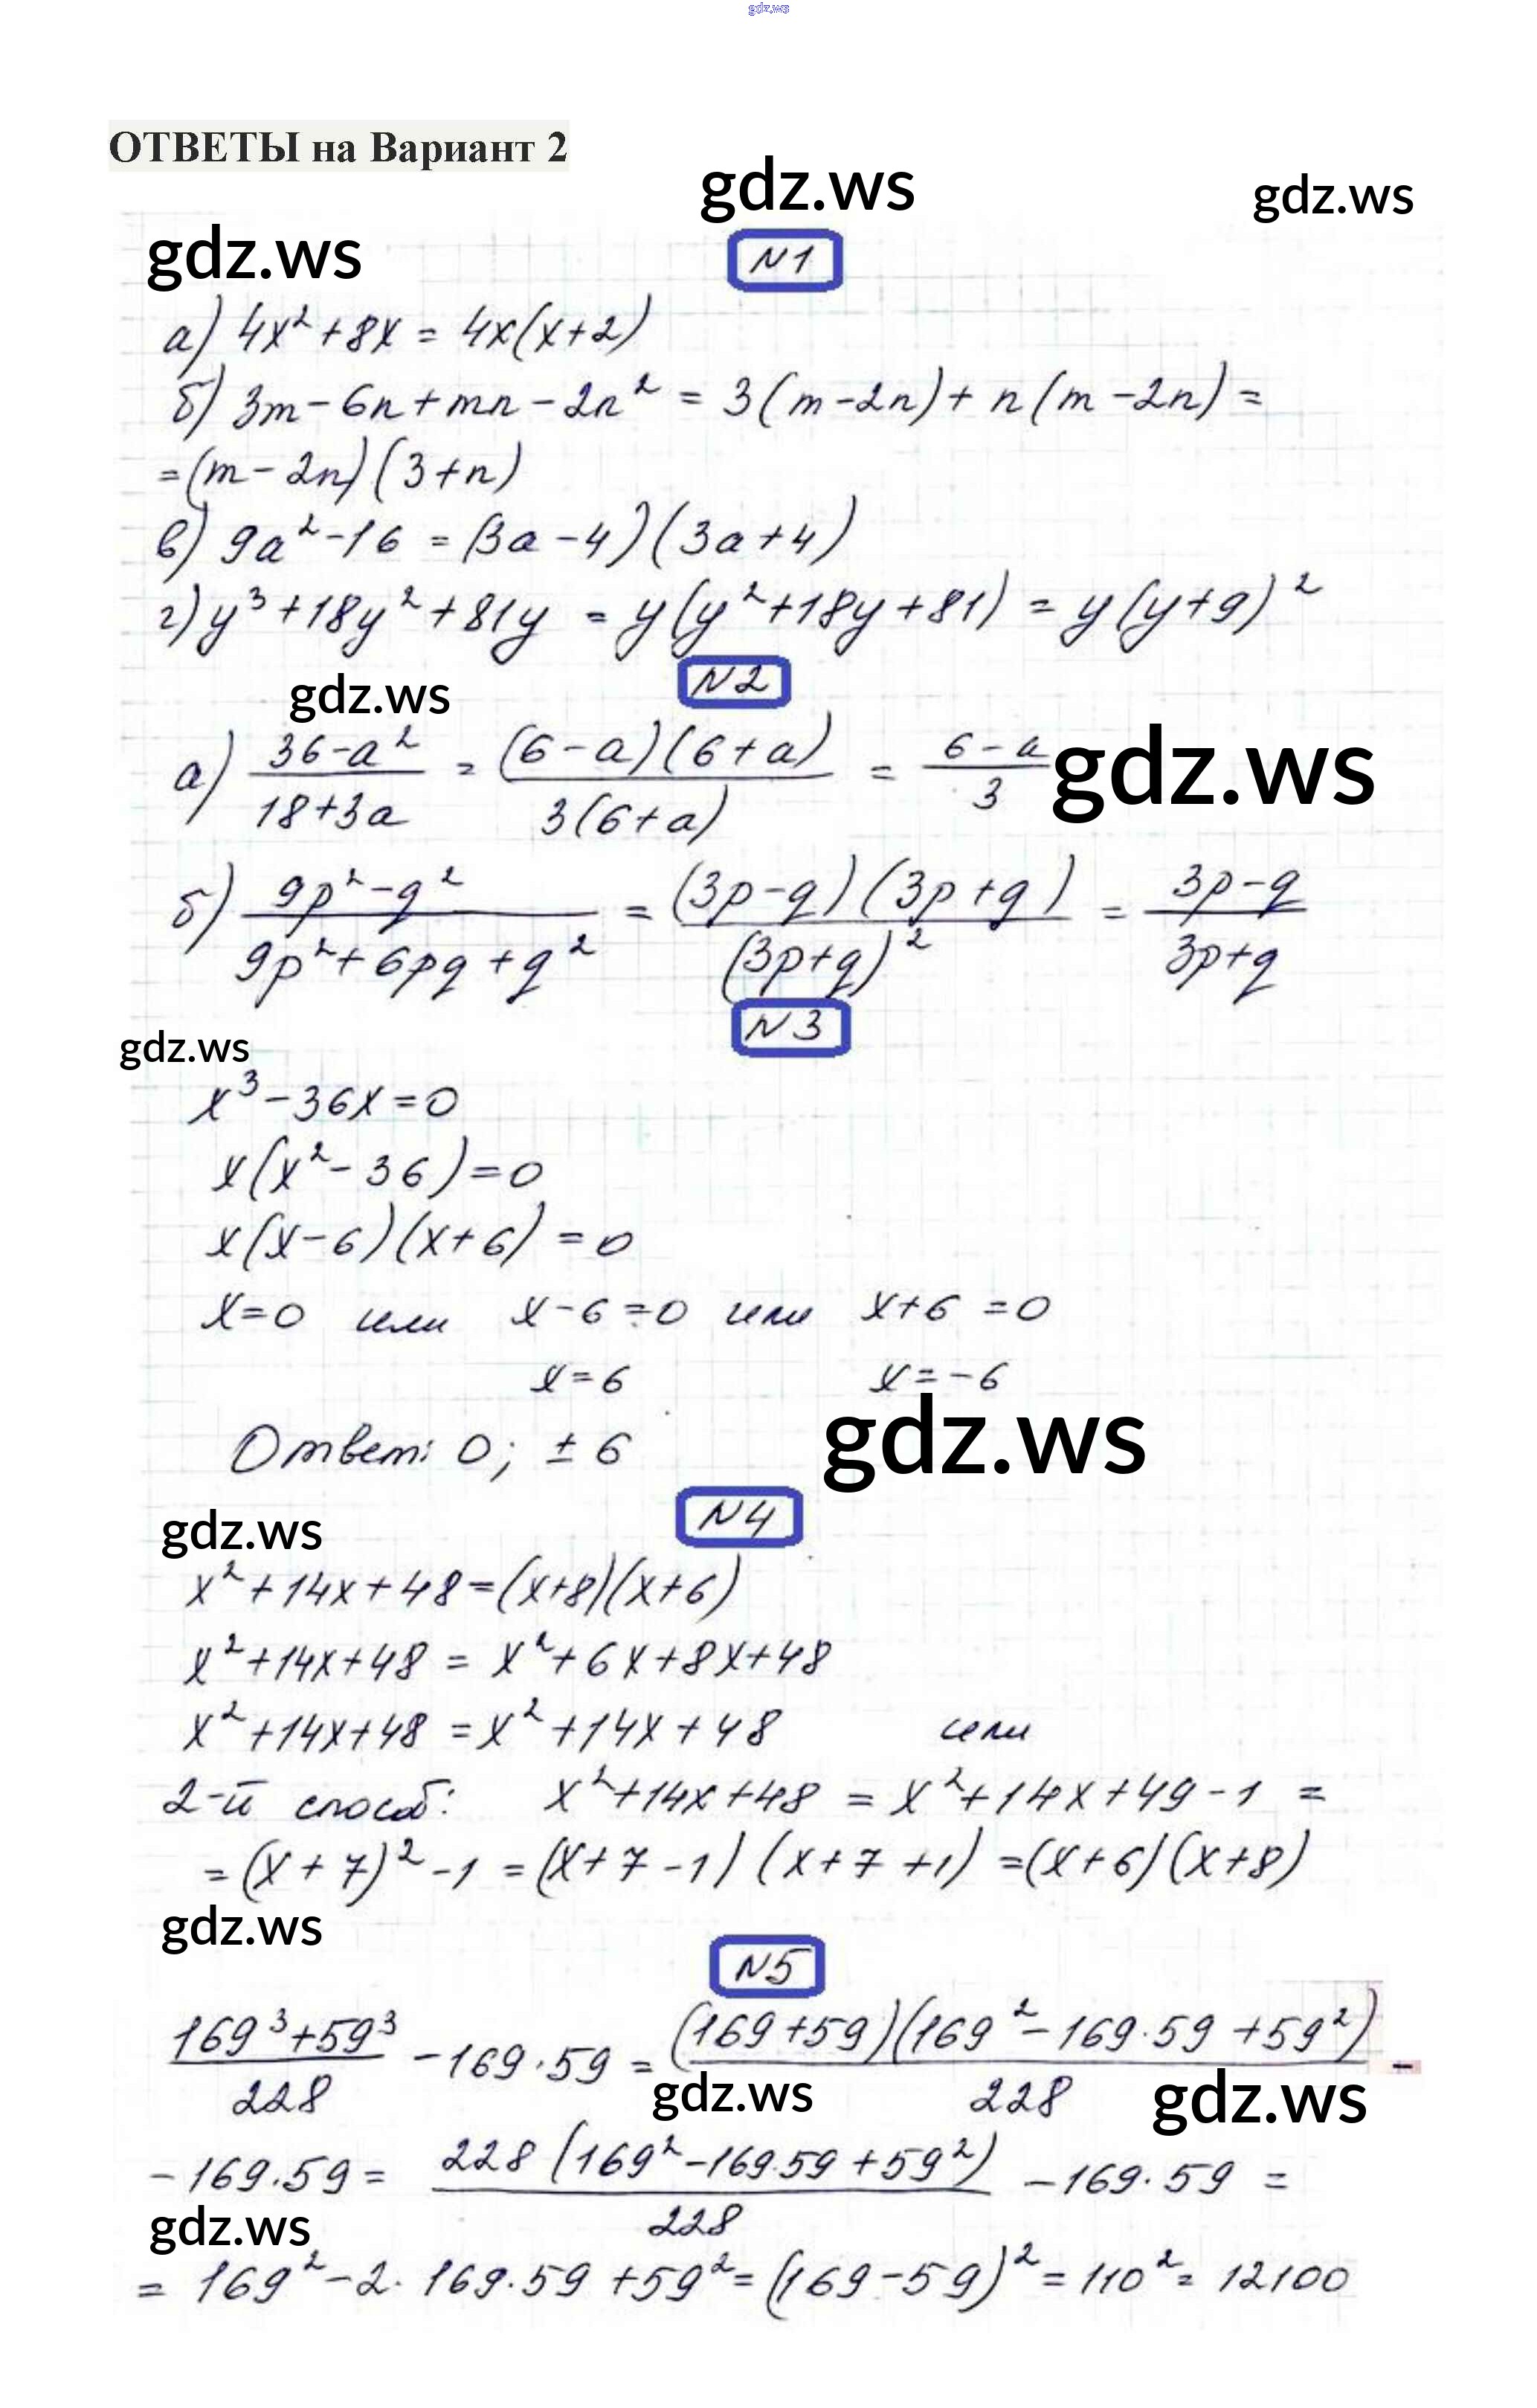 gdz.ws
ОТВЕТЫ на Вариант 2
gdz.ws
gdz.ws
gdz.ws
N1
а) 4x² + 8x = 4x(x+2)
б) 3m - 6n + mn - 2n² = 3(m-2n) + n(m-2n) =
= (m-2n)(3+n)
в) 9a² - 16 = (3a-4)(3a+4)
г) y³ + 18y² + 81y = y(y² + 18y + 81) = y(y+9)²
N2
gdz.ws
а) (36-a²)/(18+3a) = ((6-a)(6+a))/(3(6+a)) = (6-a)/3
gdz.ws
б) (9p²-q²)/(9p²+6pq+q²) = ((3p-q)(3p+q))/((3p+q)²) = (3p-q)/(3p+q)
N3
gdz.ws
x³ - 36x = 0
x(x² - 36) = 0
x(x-6)(x+6) = 0
x=0 или x-6=0 или x+6=0
x=6 x=-6
Ответ: 0; ± 6
gdz.ws
N4
gdz.ws
x² + 14x + 48 = (x+8)(x+6)
x² + 14x + 48 = x² + 6x + 8x + 48
x² + 14x + 48 = x² + 14x + 48 или
2-й способ: x² + 14x + 48 = x² + 14x + 49 - 1 =
= (x+7)² - 1 = (x+7-1)(x+7+1) = (x+6)(x+8)
gdz.ws
N5
(169³+59³)/228 - 169·59 = ((169+59)(169² - 169·59 + 59²))/228 -
gdz.ws
gdz.ws
- 169·59 = (228(169² - 169·59 + 59²))/228 - 169·59 =
gdz.ws
= 169² - 2·169·59 + 59² = (169-59)² = 110² = 12100